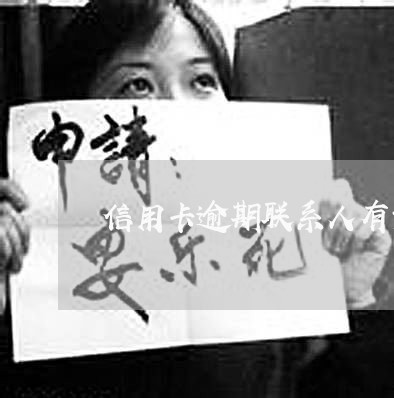 申請：
信用卡逾期联系人有
乐